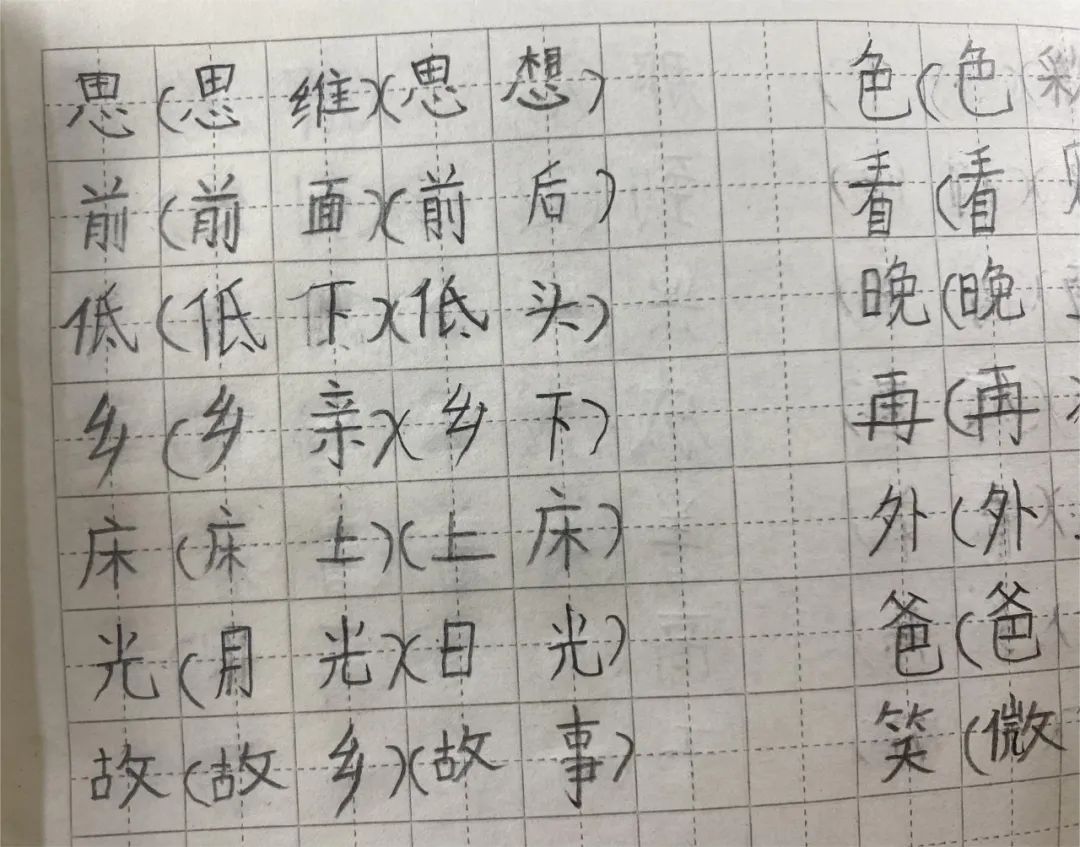 思(思维)(思想) 色(色彩
前(前面)(前后) 看(看
低(低下)(低头) 晚(晚
乡(乡亲)(乡下) 再(再
床(床上)(上床) 外(外
光(月光)(日光) 爸(爸
故(故乡)(故事) 笑(微